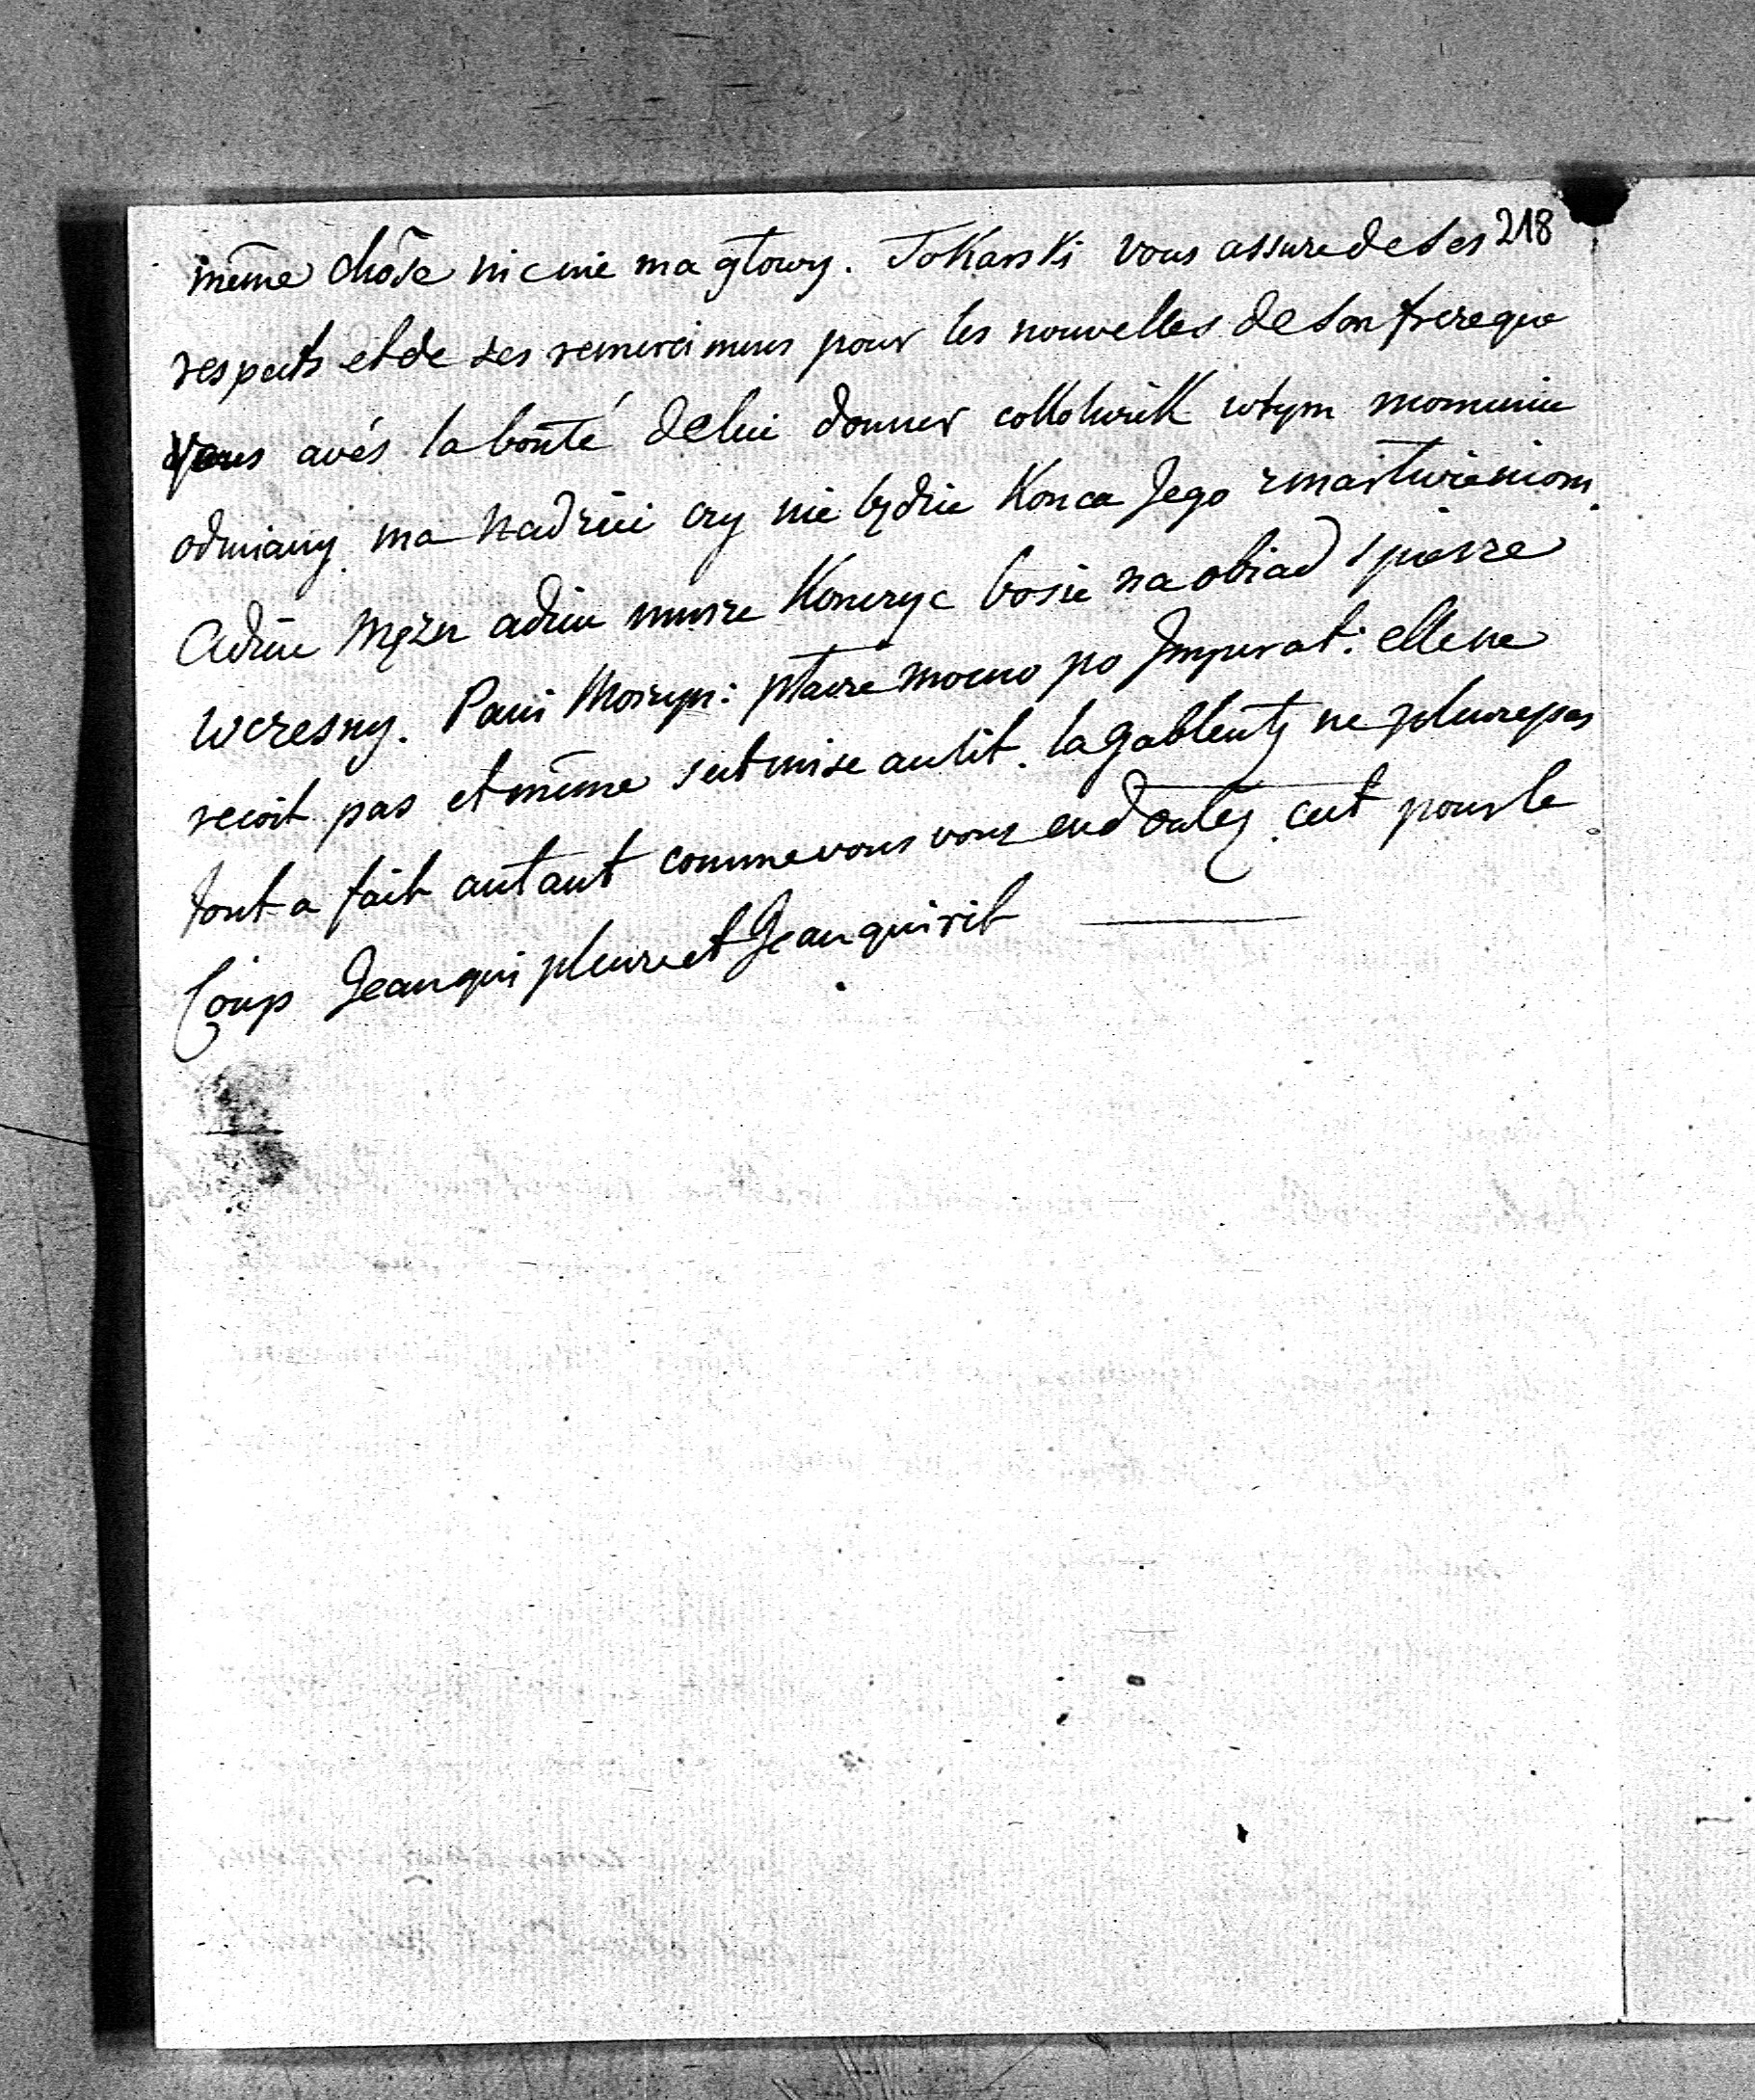 218
même chôse nic nie ma głowy. Tokarski vous assure de ses
respects et de ses remercimens pour les nouvelles de son frere que
vous avés la bonté de lui donner w tym momencie
odmiany ma nadzieie czy nie będzie Konca Jego zmartwieniom.
Adieu Mężu adieu musze Konczyc bosie na obiad spiesze
wczesny. Pani płacze mocno po Imperat: elle ne
recoit pas et même s'est mise au lit. la gablentz ne pleure pas
tout a fait autant comme vous vous en doutez. cest pour le
Coup Jean qui pleure et Jean qui rit